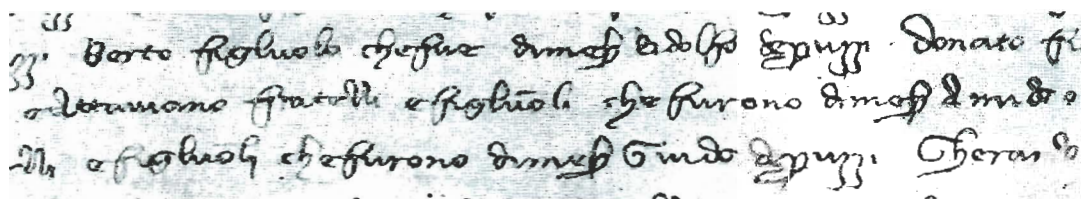 Berto figluolo che fue di mess Ridolfo de puzzi. Donato fr
e Attaviano fratelli e figluoli che furono di mess
lli e figluoli che furono di mess Guido de puzzi. Gherar do